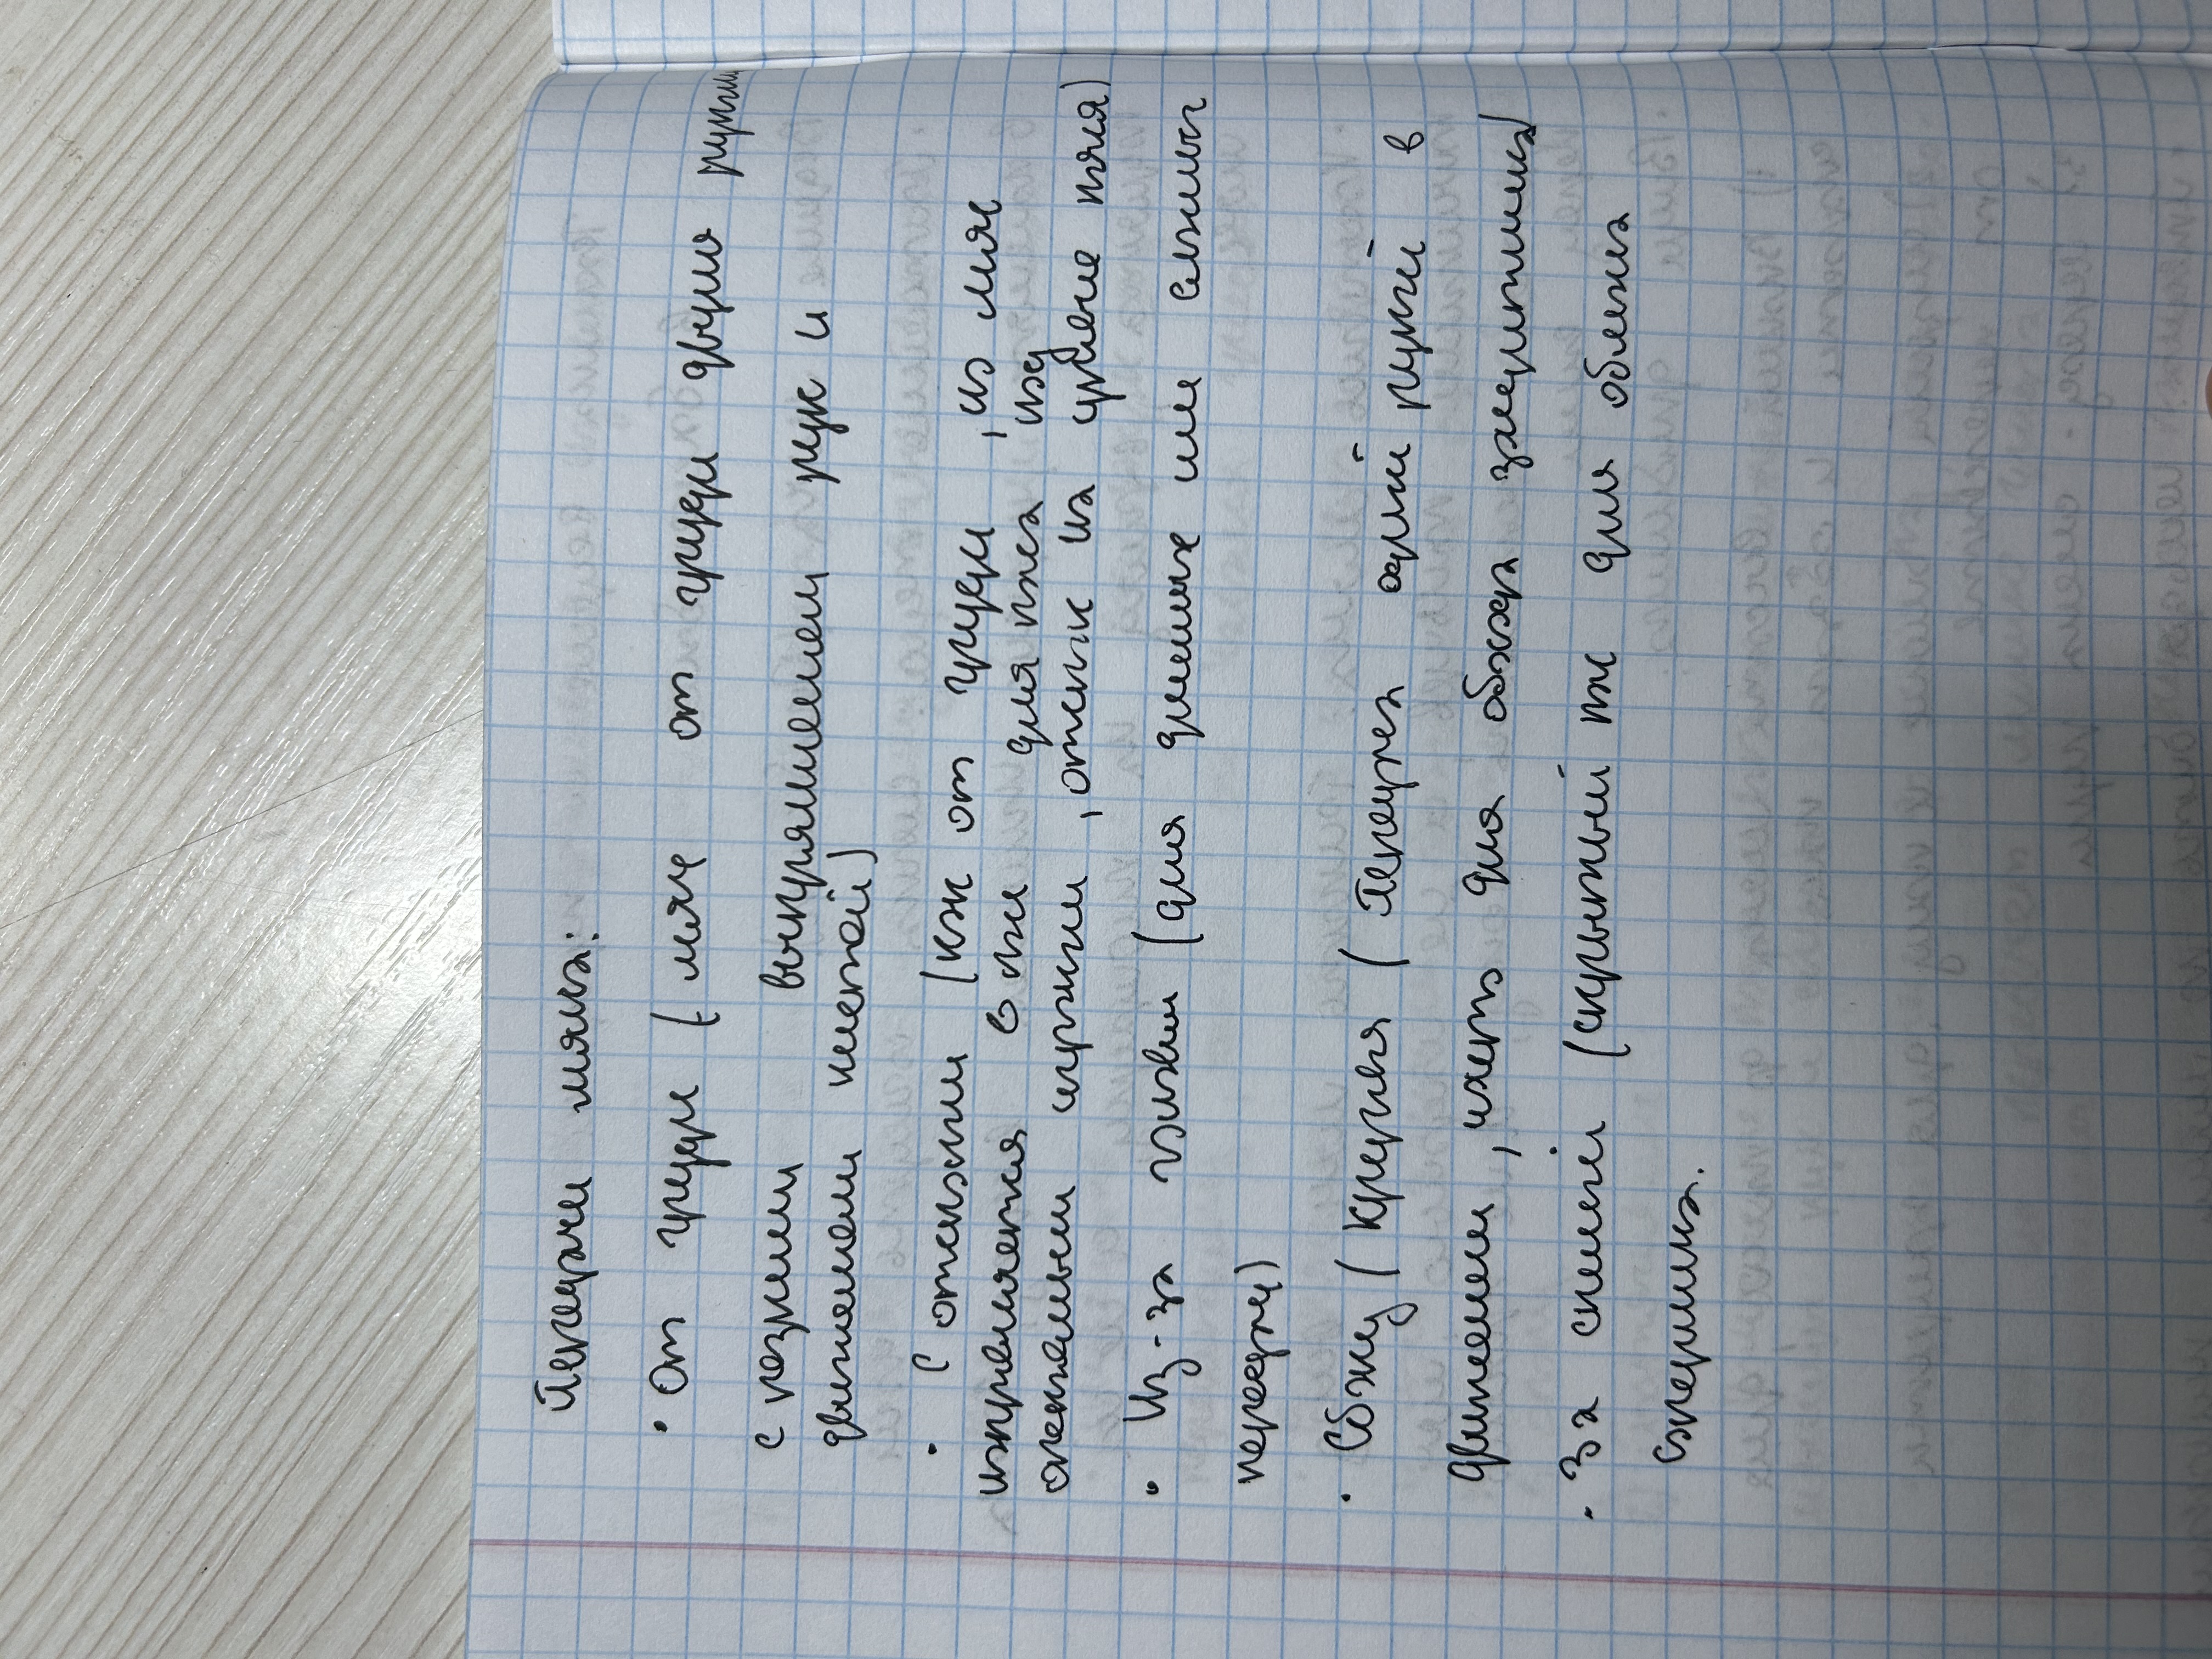 Передачи мяча:
• От груди (мяч от груди двумя руками
с резким выпрямлением рук и
движением кистей)
• С отскоком (как от груди, но мяч
направляется в пол для паса под
опекаемым игроком, отскок на уровне пояса)
• Из-за головы (для длинных или сложных
передач)
• Сбоку (Крюком) (Передача одной рукой в
движении, часто для обхода защитника)
• За спиной (скрытый пас для обмана
соперника.